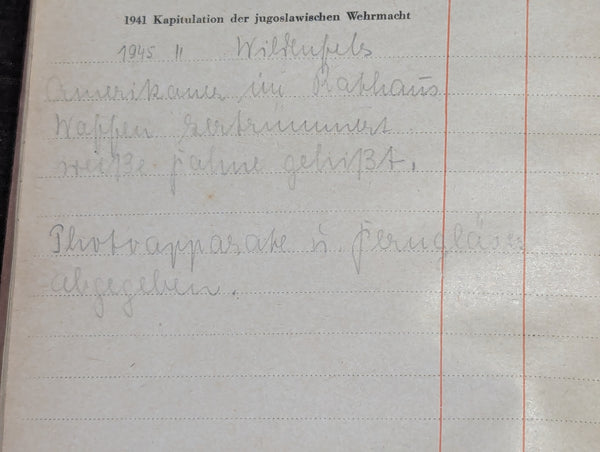 1941 Kapitulation der jugoslawischen Wehrmacht
1945 " Wildenfels
Amerikaner im Rathaus
Waffen zertrümmert.
weiße Fahne gehißt.
Photoapparate u Ferngläser
abgegeben.